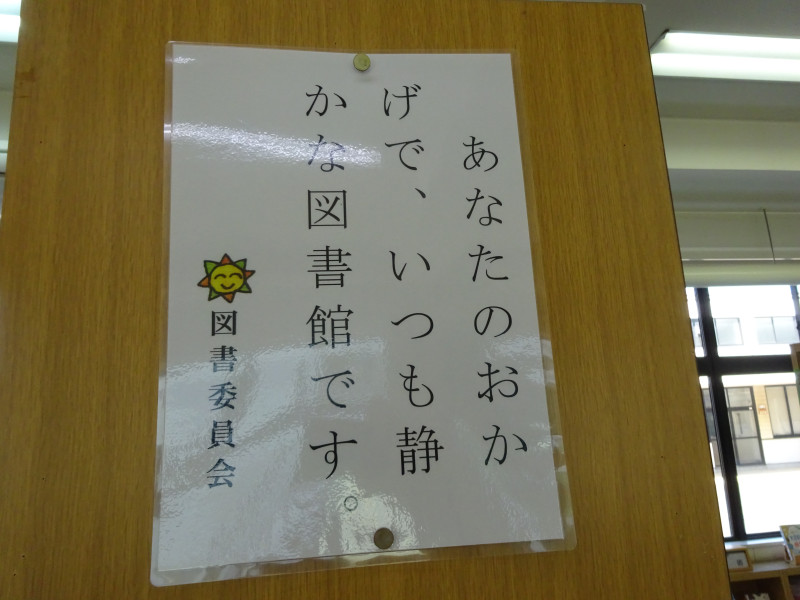 あなたのおか
げで、いつも静
かな図書館です。
図書委員会